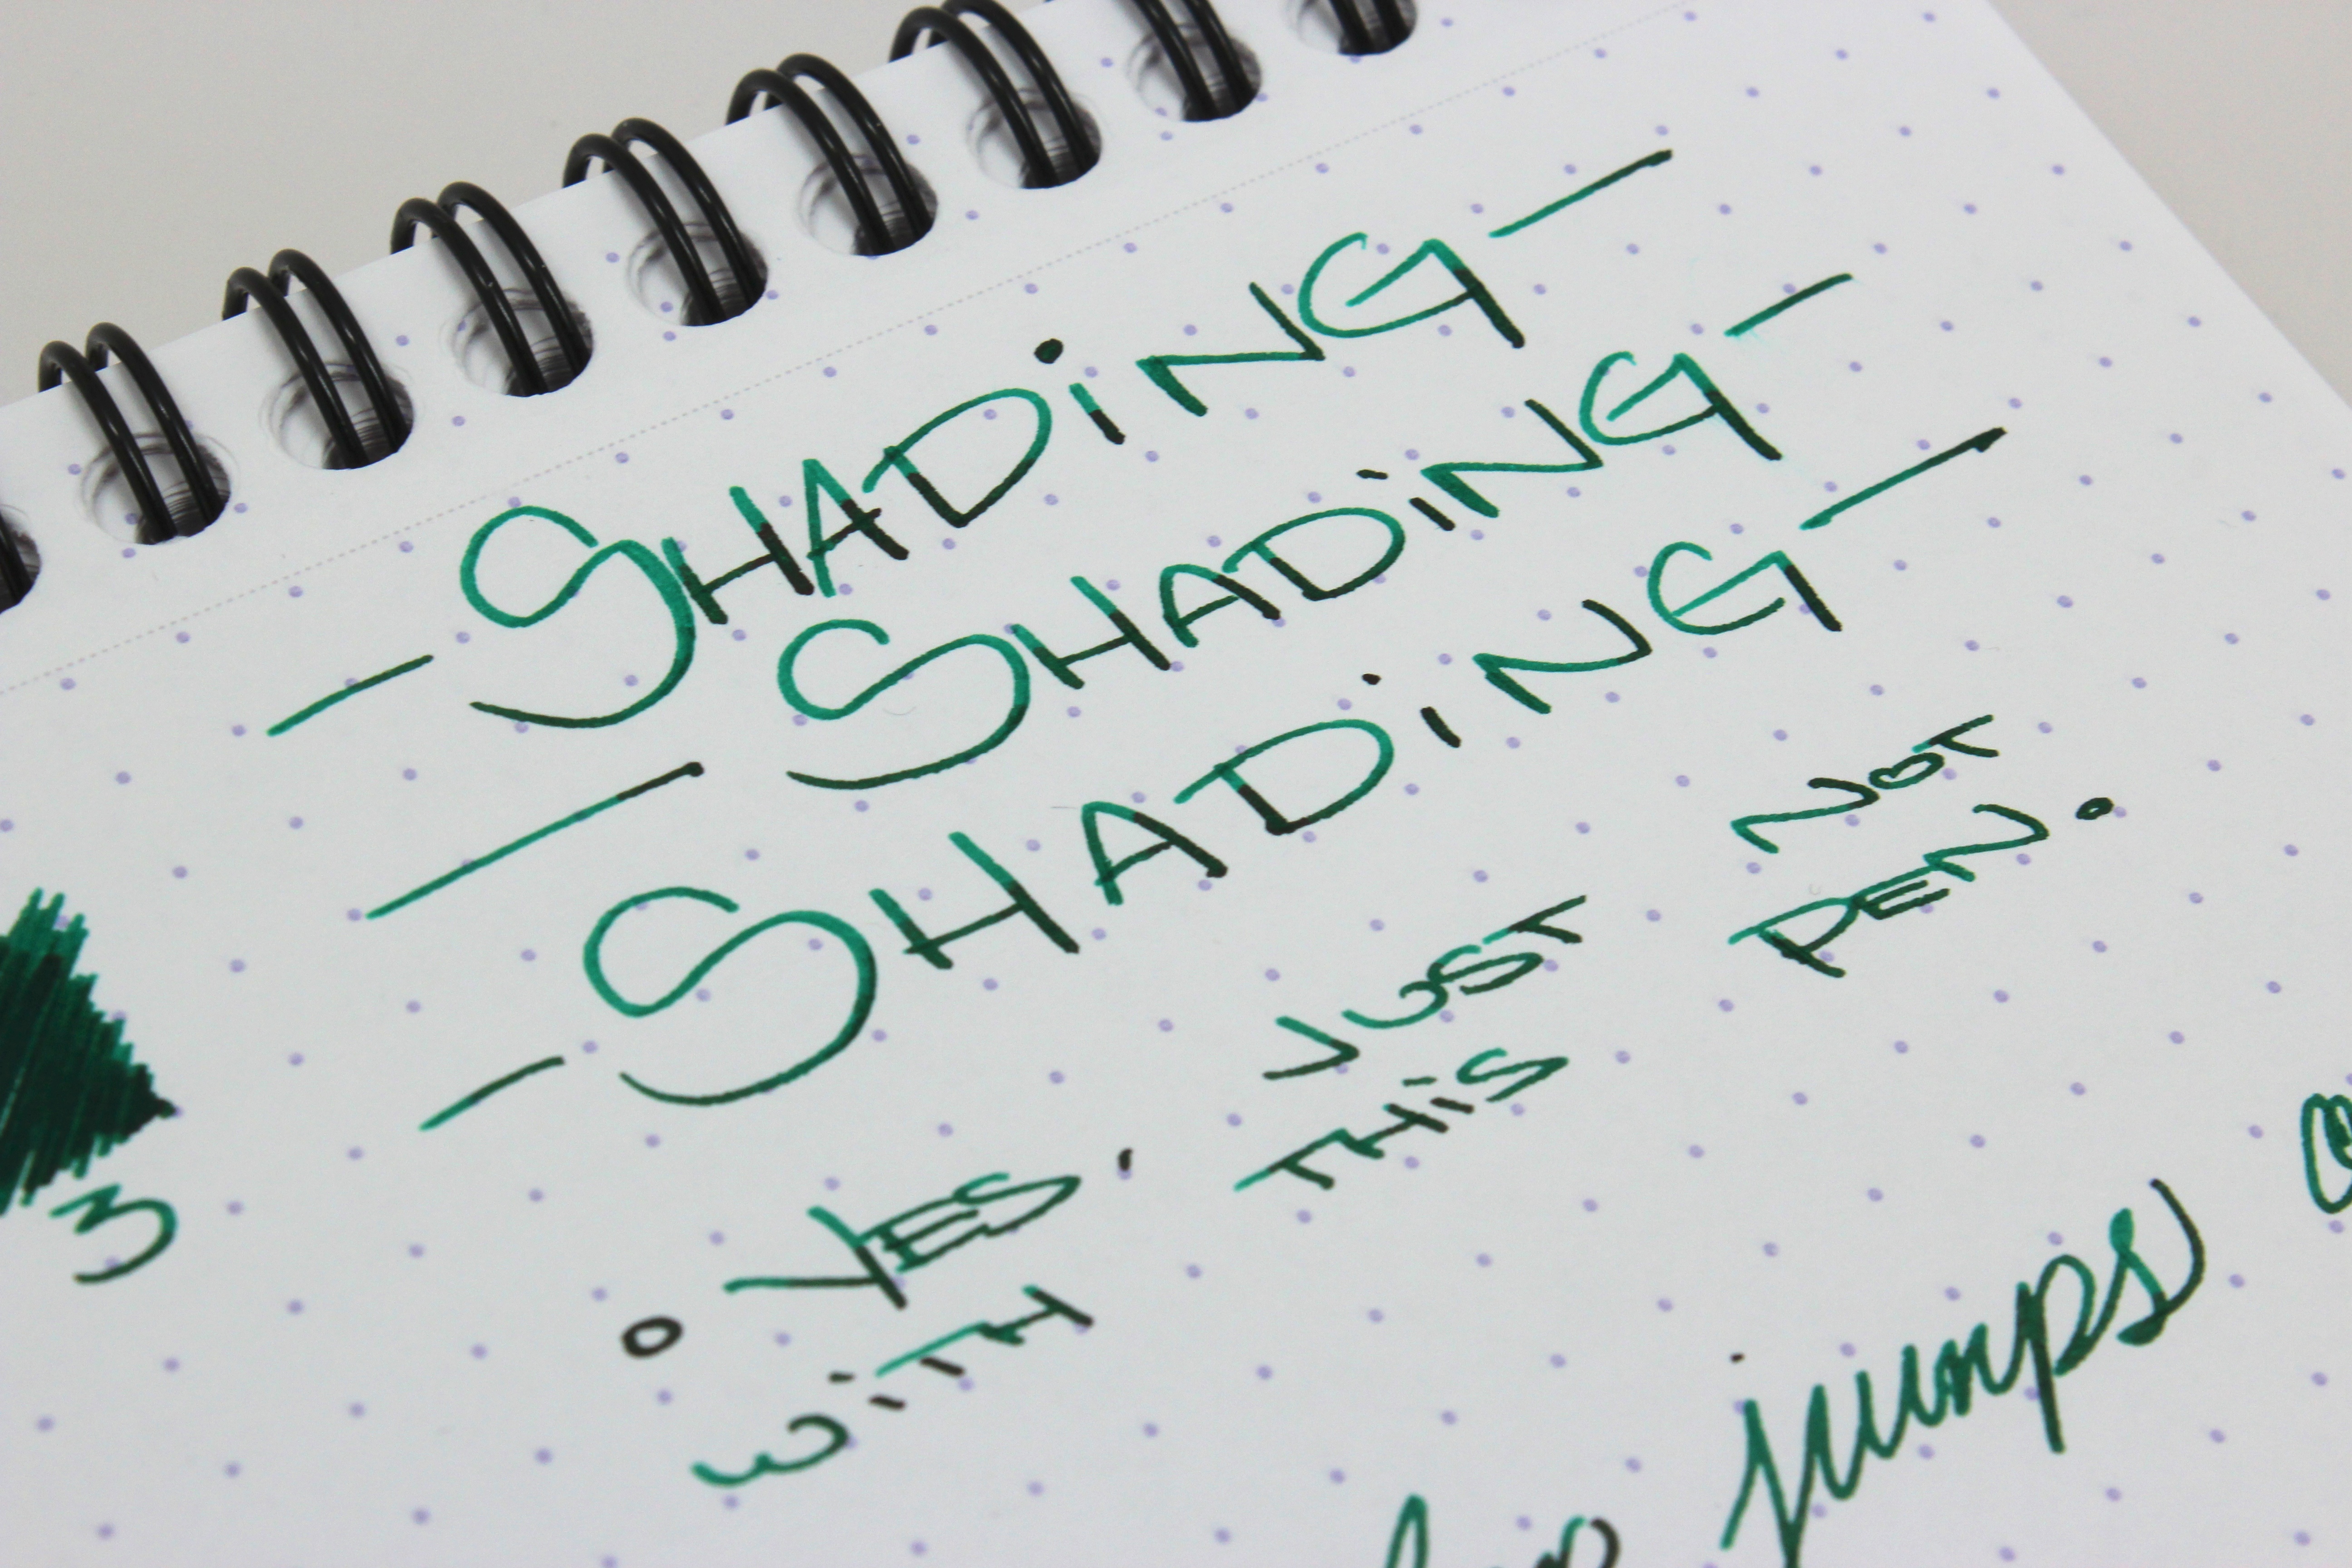 - SHADiNG -
- SHADiNG -
- SHADiNG -
3
° YES, JUST NOT
WiTH THiS PEN.
jumps